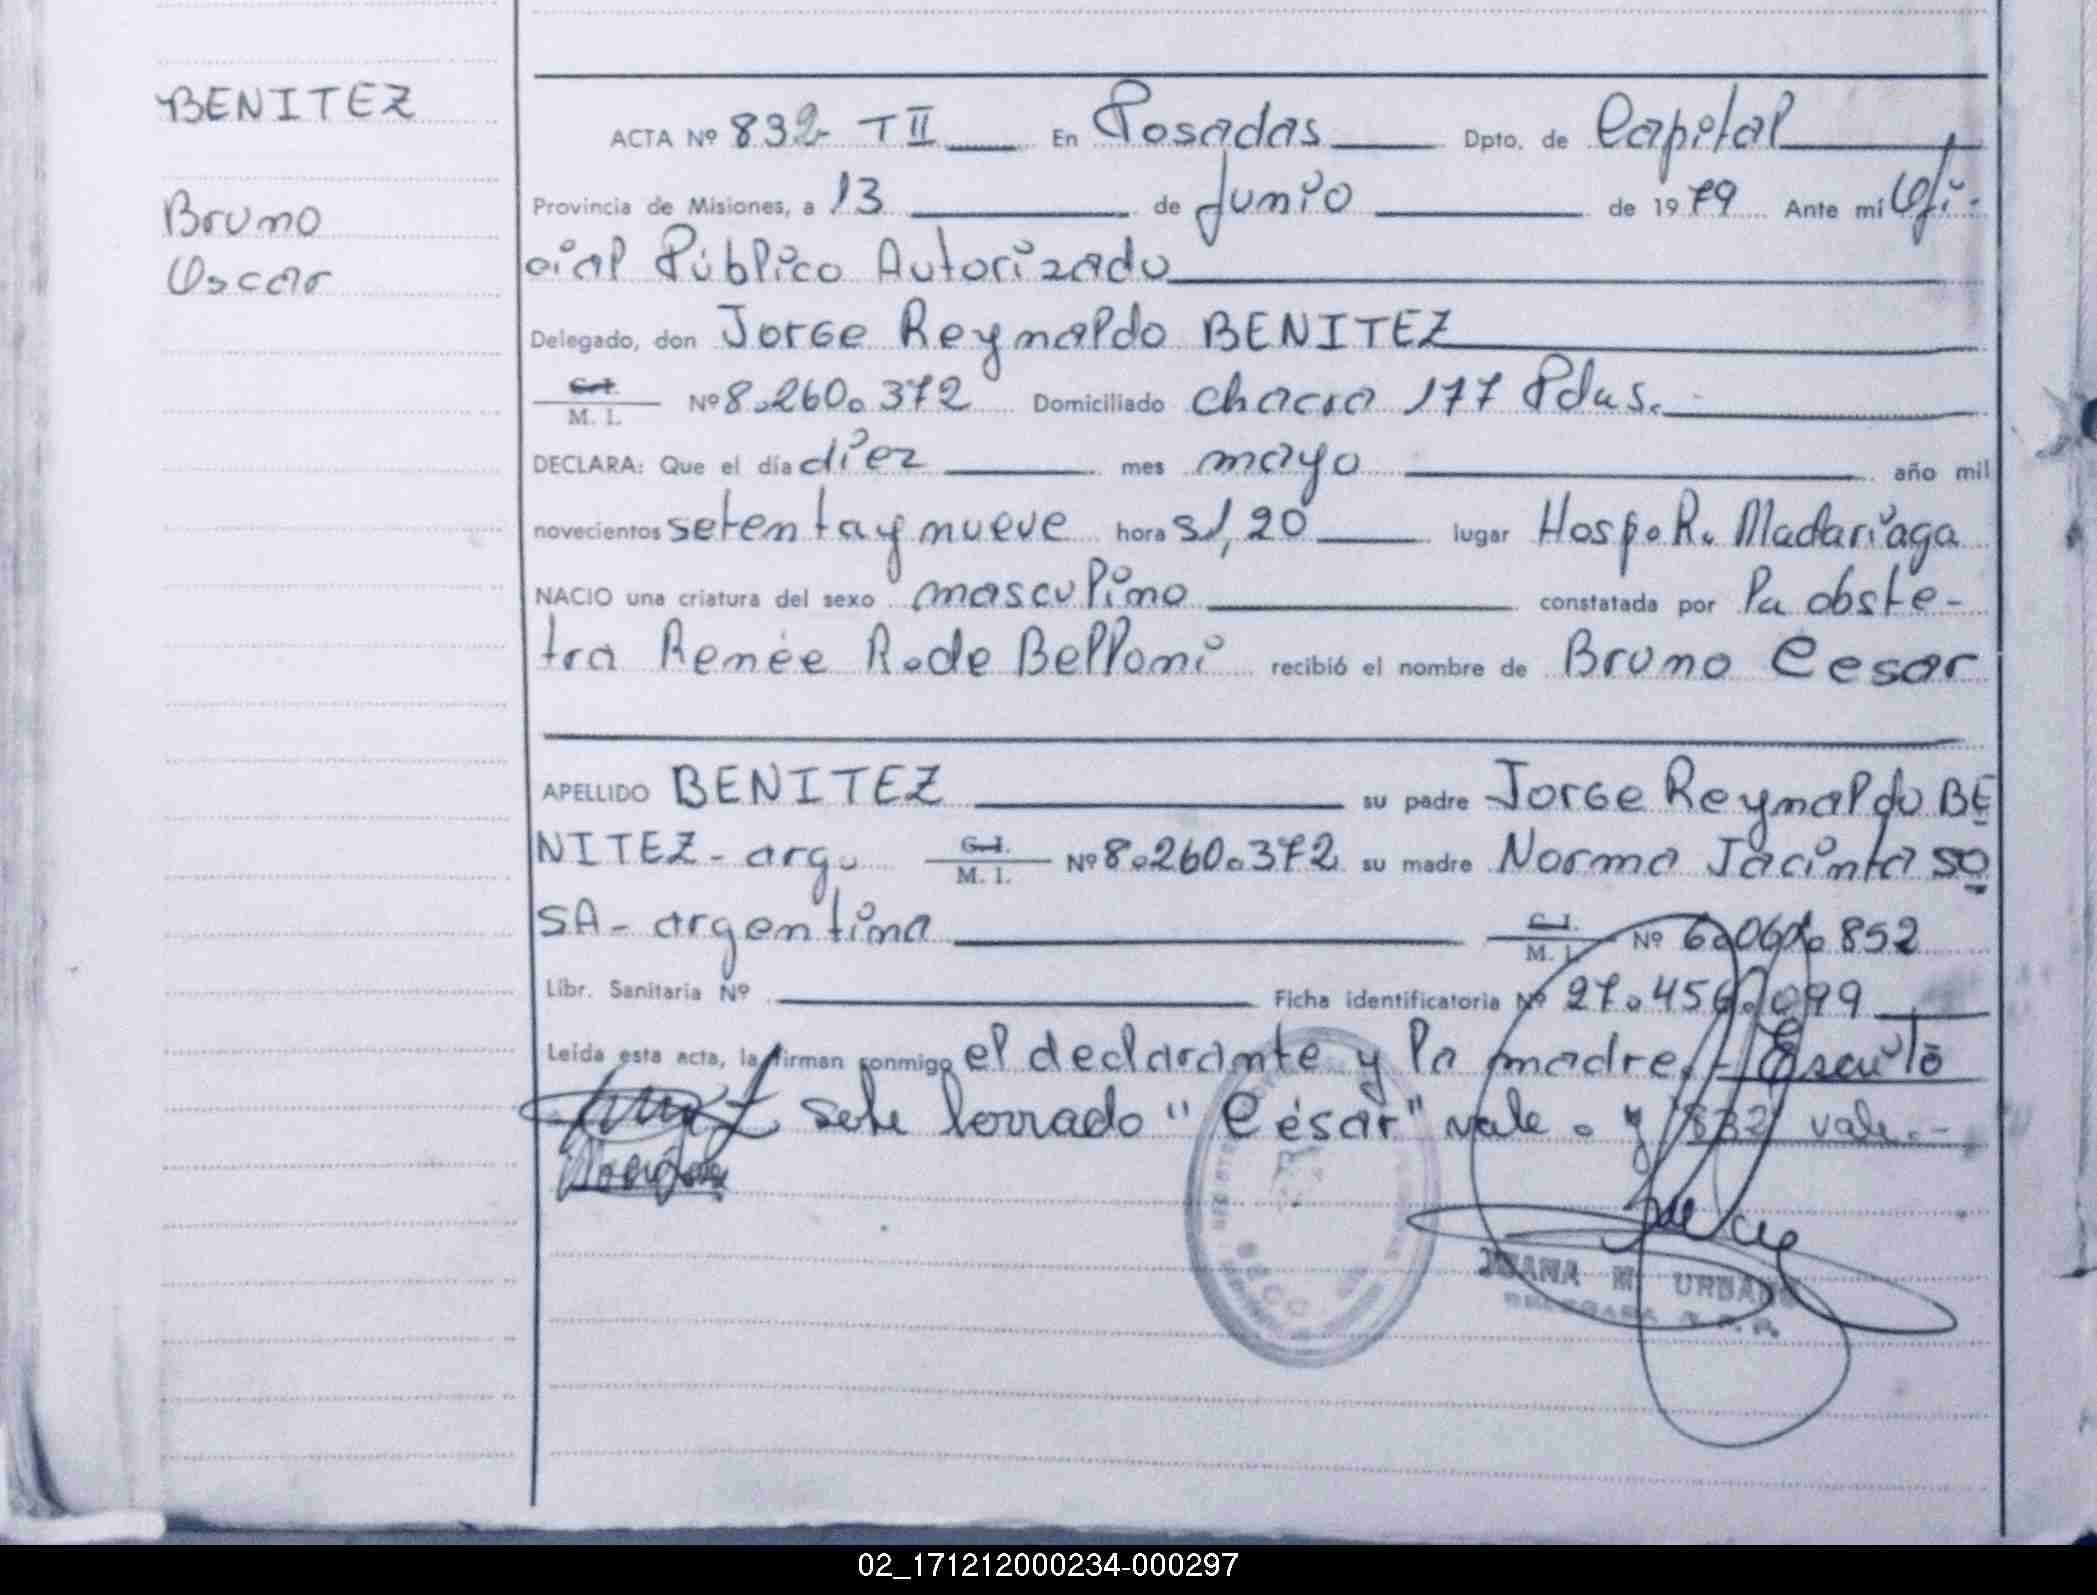 BENITEZ
Bruno
Oscar
ACTA Nº 832 T II En Posadas Dpto. de Capital
Provincia de Misiones, a 13 de Junio de 1979 Ante mí Ofi-
cial Público Autorizado
Delegado, don Jorge Reynaldo BENITEZ
C.I.
M. I. Nº 8.260.372 Domiciliado chacra 177 Pdas.
DECLARA: Que el día diez mes mayo año mil
novecientos setenta y nueve hora 20 lugar Hosp. R. Madariaga
NACIO una criatura del sexo masculino constatada por la obste-
tra Renée R. de Belloni recibió el nombre de Bruno Cesar
APELLIDO BENITEZ su padre Jorge Reynaldo BE
NITEZ - arg. C.I.
M. I. Nº 8.260.372 su madre Norma Jacinta SO
SA - argentina C.I.
M. I. Nº 852
Libr. Sanitaria Nº Ficha identificatoria Nº 27.456.099
Leída esta acta, la firman conmigo el declarante y la madre.-
borrado "César" vale. y 832 vale.-
JUANA M. URBANO
02_171212000234-000297